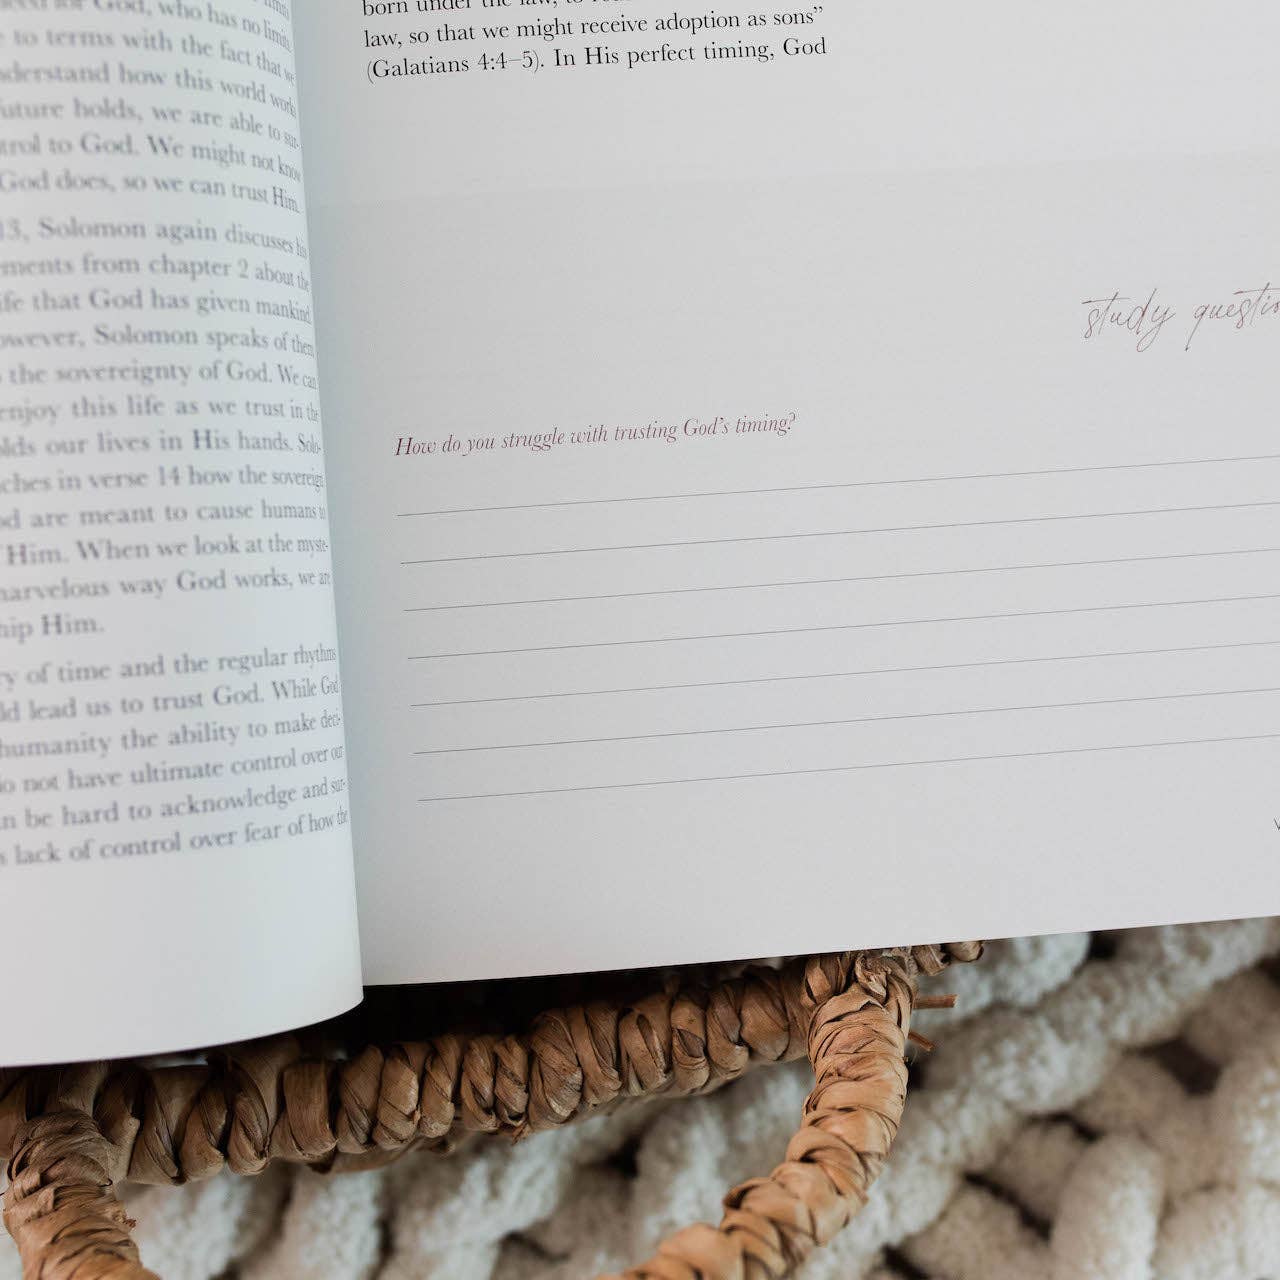 for God, who has no limits,
to terms with the fact that we
understand how this world works
future holds, we are able to sur-
trol to God. We might not know
God does, so we can trust Him.
13, Solomon again discusses his
ments from chapter 2 about the
life that God has given mankind.
owever, Solomon speaks of them
the sovereignty of God. We can
enjoy this life as we trust in the
olds our lives in His hands. Solo-
ches in verse 14 how the sovereign
od are meant to cause humans to
Him. When we look at the myste-
marvelous way God works, we are
hip Him.
ry of time and the regular rhythms
ld lead us to trust God. While God
humanity the ability to make deci-
do not have ultimate control over our
n be hard to acknowledge and sur-
s lack of control over fear of how the
born under the law, to
law, so that we might receive adoption as sons”
(Galatians 4:4–5). In His perfect timing, God
study questio
How do you struggle with trusting God’s timing?